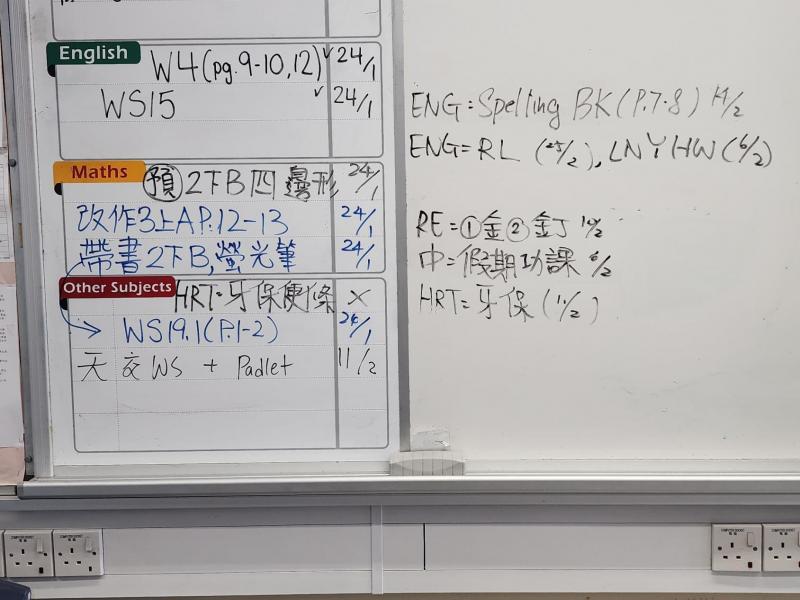 English
W4(pg.9-10,12)✓ 24/1
WS15 ✓ 24/1
Maths
預 2下B四邊形 24/1
改作3上A P.12-13 24/1
帶書2下B,螢光筆 24/1
Other Subjects
HRT=牙保便條 ×
WS19.1(P.1-2) 24/1
天 交 WS + Padlet 11/2
ENG=Spelling BK(P.7-8) 14/2
ENG=RL (25/2), LNY HW(6/2)
RE=①金②釘 10/2
中=假期功課 6/2
HRT=牙保(11/2)